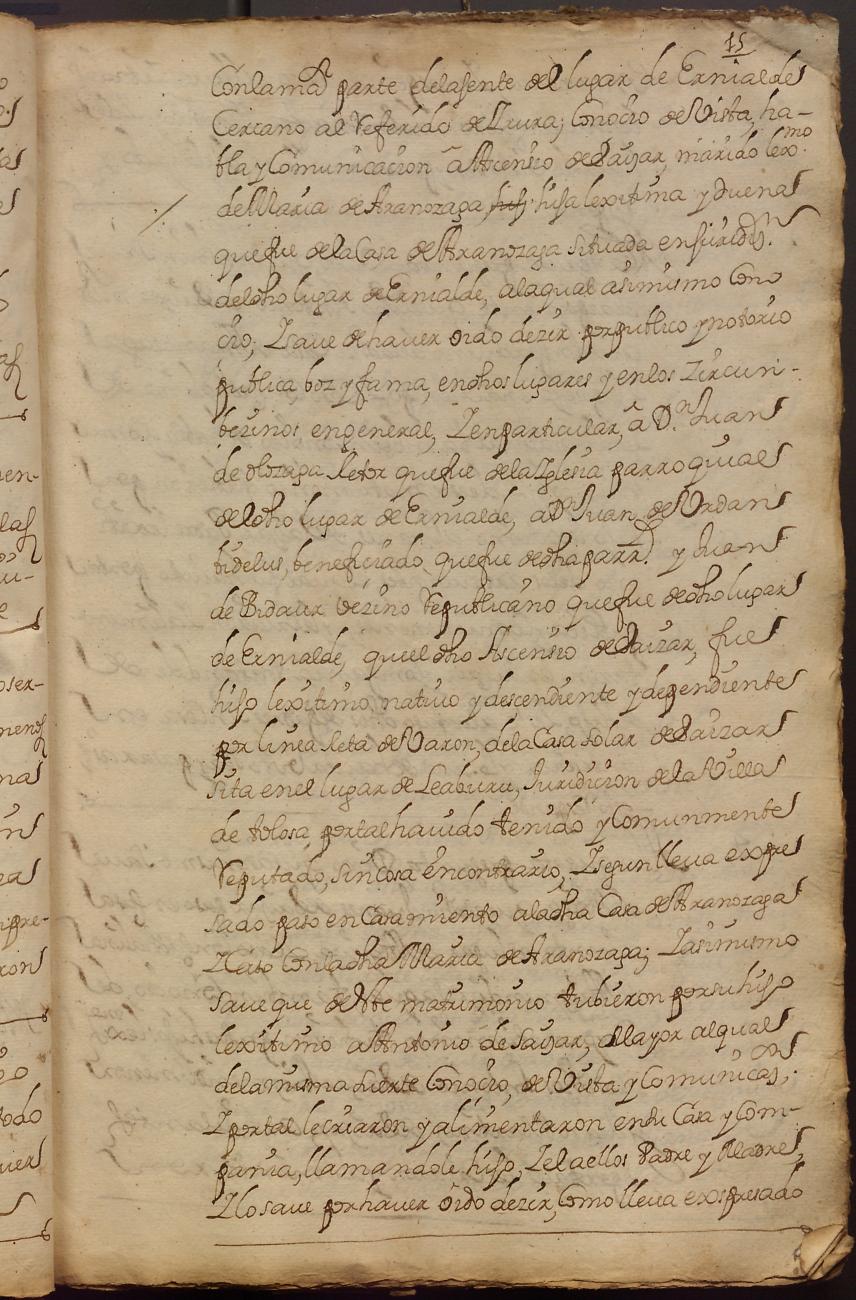 15
Con la ma.r parte de la gente del lugar de Ernialde
Cercano al referido de Yrura; Conocio de Vista, ha-
bla y Comunicacion â Ascensio de Saizar, marido lex.mo
de Maria de Aranozaga, hija lexitima y Duena
que fue de la Casa de Aranozaga situada en Juridi.on
del dho lugar de Ernialde, a la qual asimismo Cono
cio; Y saue de hauer oido dezir por publico y notorio
publica boz y fama, en dhos lugares y en los Zircun-
bezinos en general, Y en particular, â D.n Juan
de Olozaga Retor que fue de la Yglesia parroquial
del dho lugar de Ernialde, a D.n Juan de Urdan
bidelus, beneficiado que fue de dha parr.l y Juan
de Bidaur vezino republicano que fue de dho lugar
de Ernialde, que el dho Ascensio de Saizar, fue
hijo lexitimo, natiuo y descendiente y dependiente
por linea Reta de Varon, de la Casa solar de Saizar
sita en el lugar de Leaburu, Juridicion de la Villa
de tolosa, por tal hauido tenido y Comunmente
reputado, sin Cosa en contrario, Y segun lleua expre
sado paso en Casamiento a la dha Casa de Aranozaga
Y Caso Con la dha Maria de Aranozaga; Y asimismo
saue que de este matrimonio tubieron por su hijo
lexitimo a Antonio de Saizar, mayor al qual
de la misma suerte Conocio, de Vista y Comunica.on,
Y por tal le criaron y alimentaron en su Casa y Com-
pania, llamandole hijo, Y el a ellos Padre y Madre,
Y lo saue por hauer oido dezir, Como lleua expresado